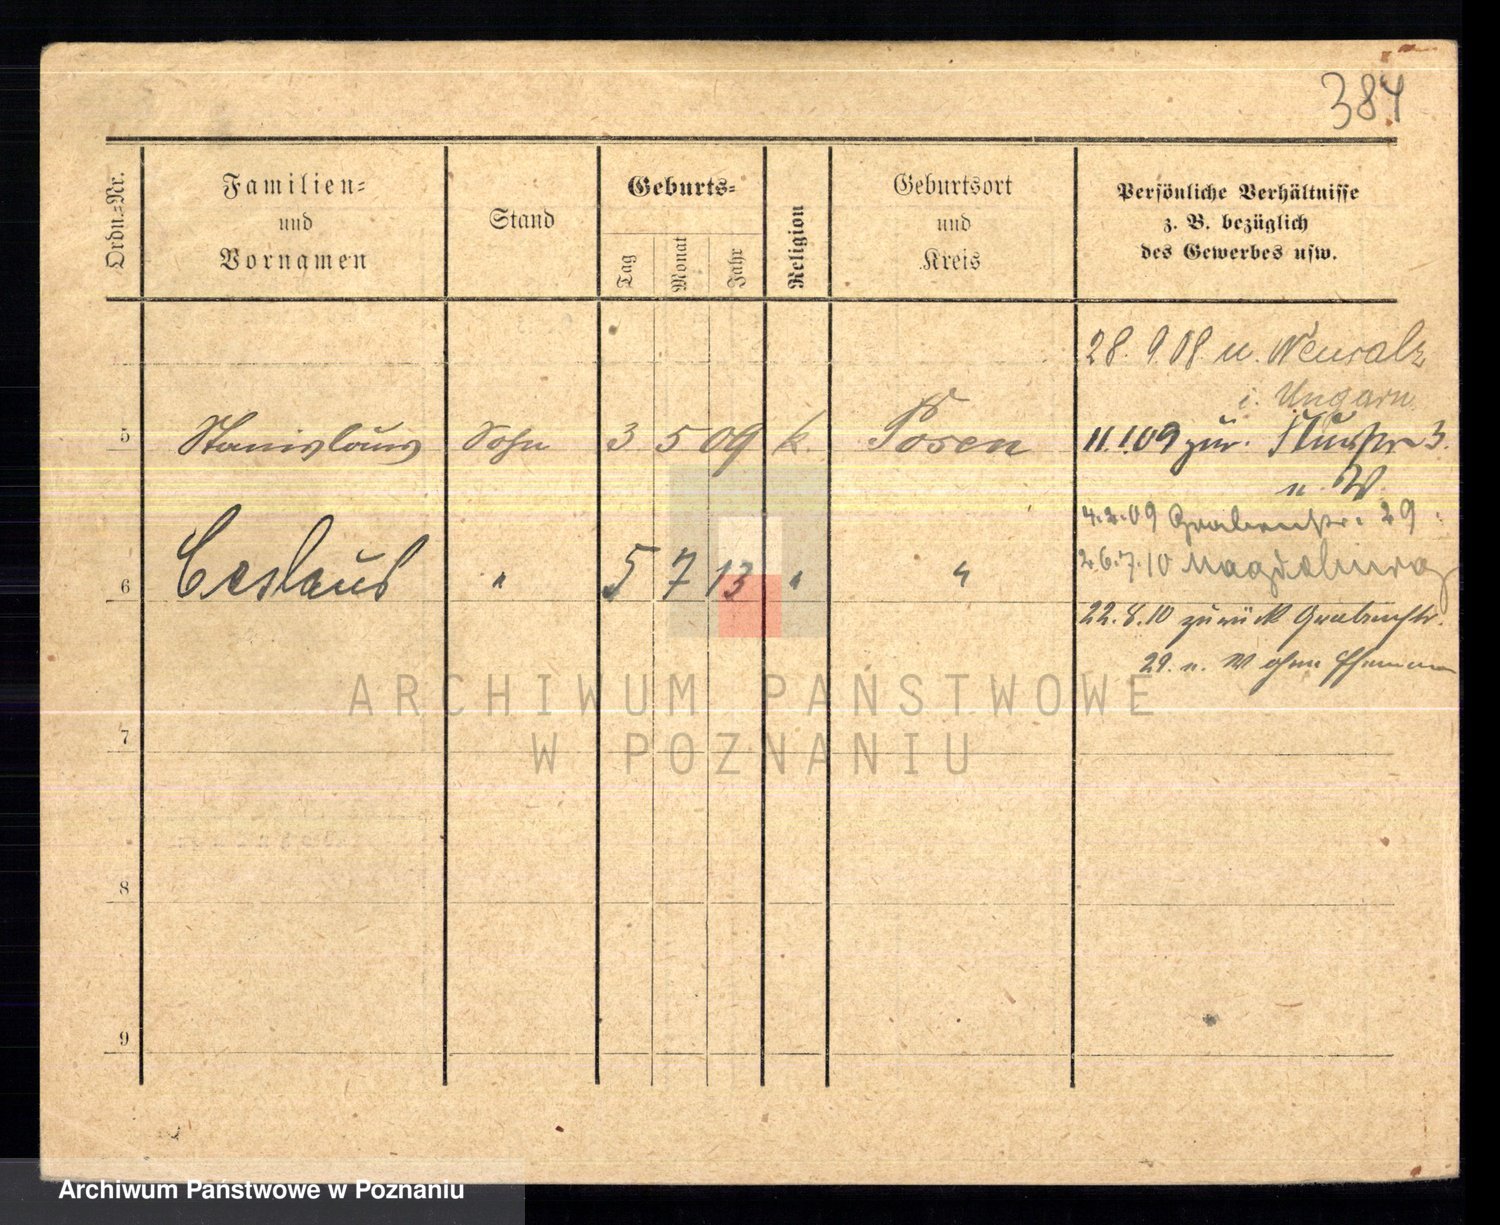 384
Ordn.=Nr.
Familien=
und
Vornamen
Stand
Geburts=
Tag
Monat
Jahr
Religion
Geburtsort
und
Kreis
Persönliche Verhältnisse
z. B. bezüglich
des Gewerbes usw.
28. 9. 08 n. Neusalz
i. Ungarn
5 Stanislaus Sohn 3 5 09 k. Posen
11.1.09 zur.
3.
n. W
4.2.09 Grabenstr. 29
6 Ceslaus " 5 7 13 " "
26.7.10 Magdeburg
22.8.10 zurück Grabenstr.
29. n. W ohne
ARCHIWUM PAŃSTWOWE
W POZNANIU
7
8
9
Archiwum Państwowe w Poznaniu